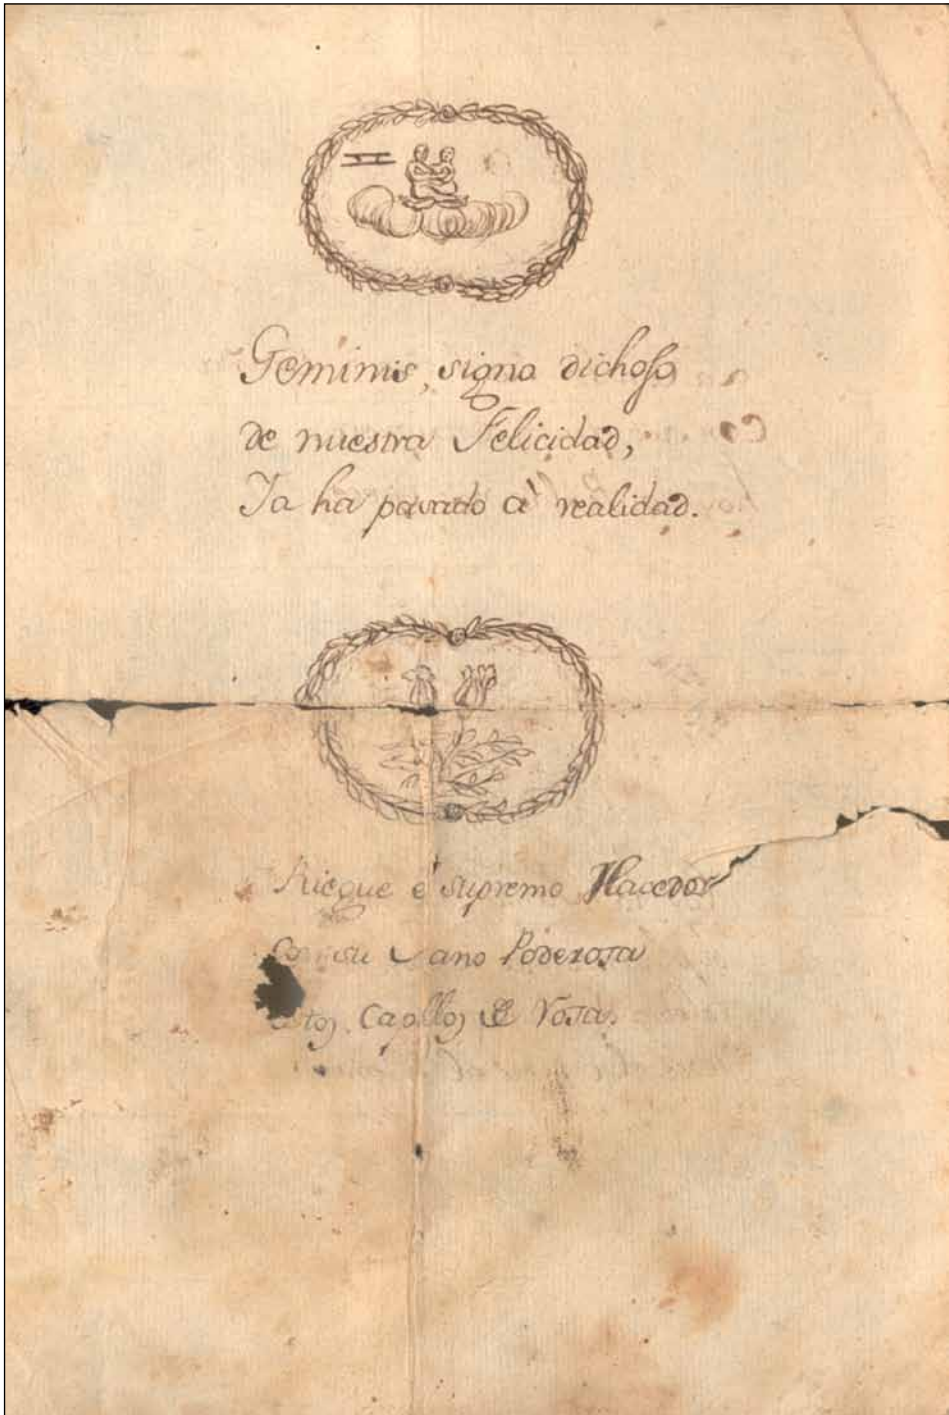 Geminis, signo dichoso
de nuestra Felicidad,
Ya ha pasado à realidad.
Riegue e supremo Hacedor
Con su ano Poderosa
estos Capllos de Rosa.